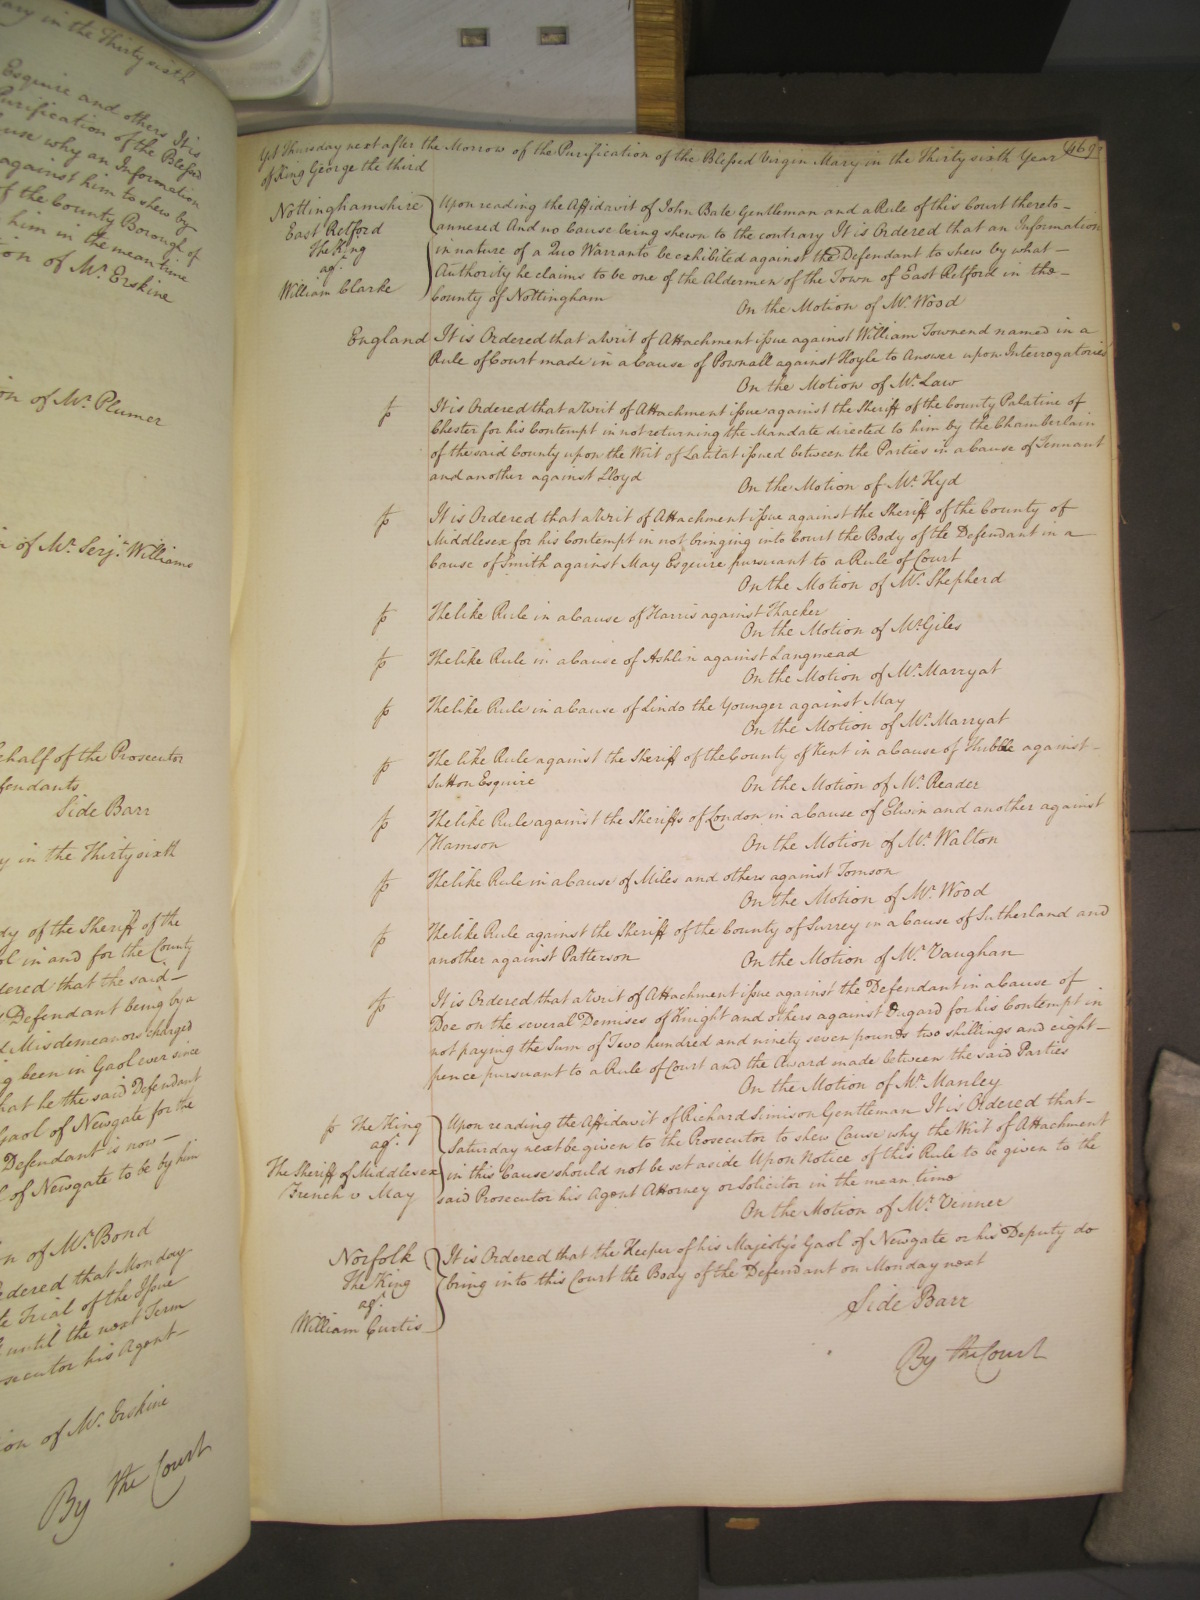 ary in the Thirty sixth
Esquire and others It is
Purification of the Blessed
use why an Information
against him to shew by
of the County Borough of
him in the mean time
ion of Mr. Erskine
on of Mr. Plumer
n of Mr. Serjt. Williams
ehalf of the Prosecutor
fendants
Side Barr
y in the Thirty sixth
dy of the Sheriff of the
ol in and for the County
dered that the said
Defendant being by a
d Misdemeanors charged
g been in Gaol ever since
hat he the said Defendant
Gaol of Newgate for the
Defendant is now
l of Newgate to be by him
n of Mr. Bond
rdered that Monday
te Trial of the Issue
until the next Term
osecutor his Agent
ion of Mr. Erskine
By the Court
Yet Thursday next after the Morrow of the Purification of the Blessed Virgin Mary in the Thirty sixth Year
of King George the third
Nottinghamshire Upon reading the Affidavit of John Bate Gentleman and a Rule of this Court thereto
East Retford annexed And no Cause being shewn to the contrary It is Ordered that an Information
The King in nature of a Quo Warranto be exhibited against the Defendant to shew by what
agt. Authority he claims to be one of the Aldermen of the Town of East Retford in the
William Clarke County of Nottingham
On the Motion of Mr. Wood
England It is Ordered that a Writ of Attachment issue against William Townend named in a
Rule of Court made in a Cause of Pownall against Hoyle to Answer upon Interrogatories
On the Motion of Mr. Law
It is Ordered that a Writ of Attachment issue against the Sheriff of the County Palatine of
Chester for his Contempt in not returning the Mandate directed to him by the Chamberlain
of the said County upon the Writ of Latitat issued between the Parties in a Cause of Tennant
and another against Lloyd On the Motion of Mr. Hyd
It is Ordered that a Writ of Attachment issue against the Sheriff of the County of
Middlesex for his Contempt in not bringing into Court the Body of the Defendant in a
Cause of Smith against May Esquire pursuant to a Rule of Court
On the Motion of Mr. Shepherd
The like Rule in a Cause of Harris against Thacker
On the Motion of Mr. Giles
The like Rule in a Cause of Ashlin against Langmead
On the Motion of Mr. Marryat
The like Rule in a Cause of Lindo the Younger against May
On the Motion of Mr. Marryat
The like Rule against the Sheriff of the County of Kent in a Cause of Hubble against
Sutton Esquire On the Motion of Mr. Reader
The like Rule against the Sheriffs of London in a Cause of Elwin and another against
Hamson On the Motion of Mr. Walton
The like Rule in a Cause of Miles and others against Tomson
On the Motion of Mr. Wood
The like Rule against the Sheriff of the County of Surrey in a Cause of Sutherland and
another against Patterson On the Motion of Mr. Vaughan
It is Ordered that a Writ of Attachment issue against the Defendant in a Cause of
Doe on the several Demises of Knight and others against Dugard for his Contempt in
not paying the Sum of Two hundred and ninety seven pounds two shillings and eight
pence pursuant to a Rule of Court and the Award made between the said Parties
On the Motion of Mr. Manley
The King Upon reading the Affidavit of Richard Simison Gentleman It is Ordered that
agt. Saturday next be given to the Prosecutor to shew Cause why the Writ of Attachment
The Sheriff of Middlesex in this Cause should not be set aside Upon Notice of this Rule to be given to the
French v May said Prosecutor his Agent Attorney or Solicitor in the mean time
On the Motion of Mr. Vinner
Norfolk It is Ordered that the Keeper of his Majesty's Gaol of Newgate or his Deputy do
The King bring into this Court the Body of the Defendant on Monday next
agt.
William Curtis
Side Barr
By the Court